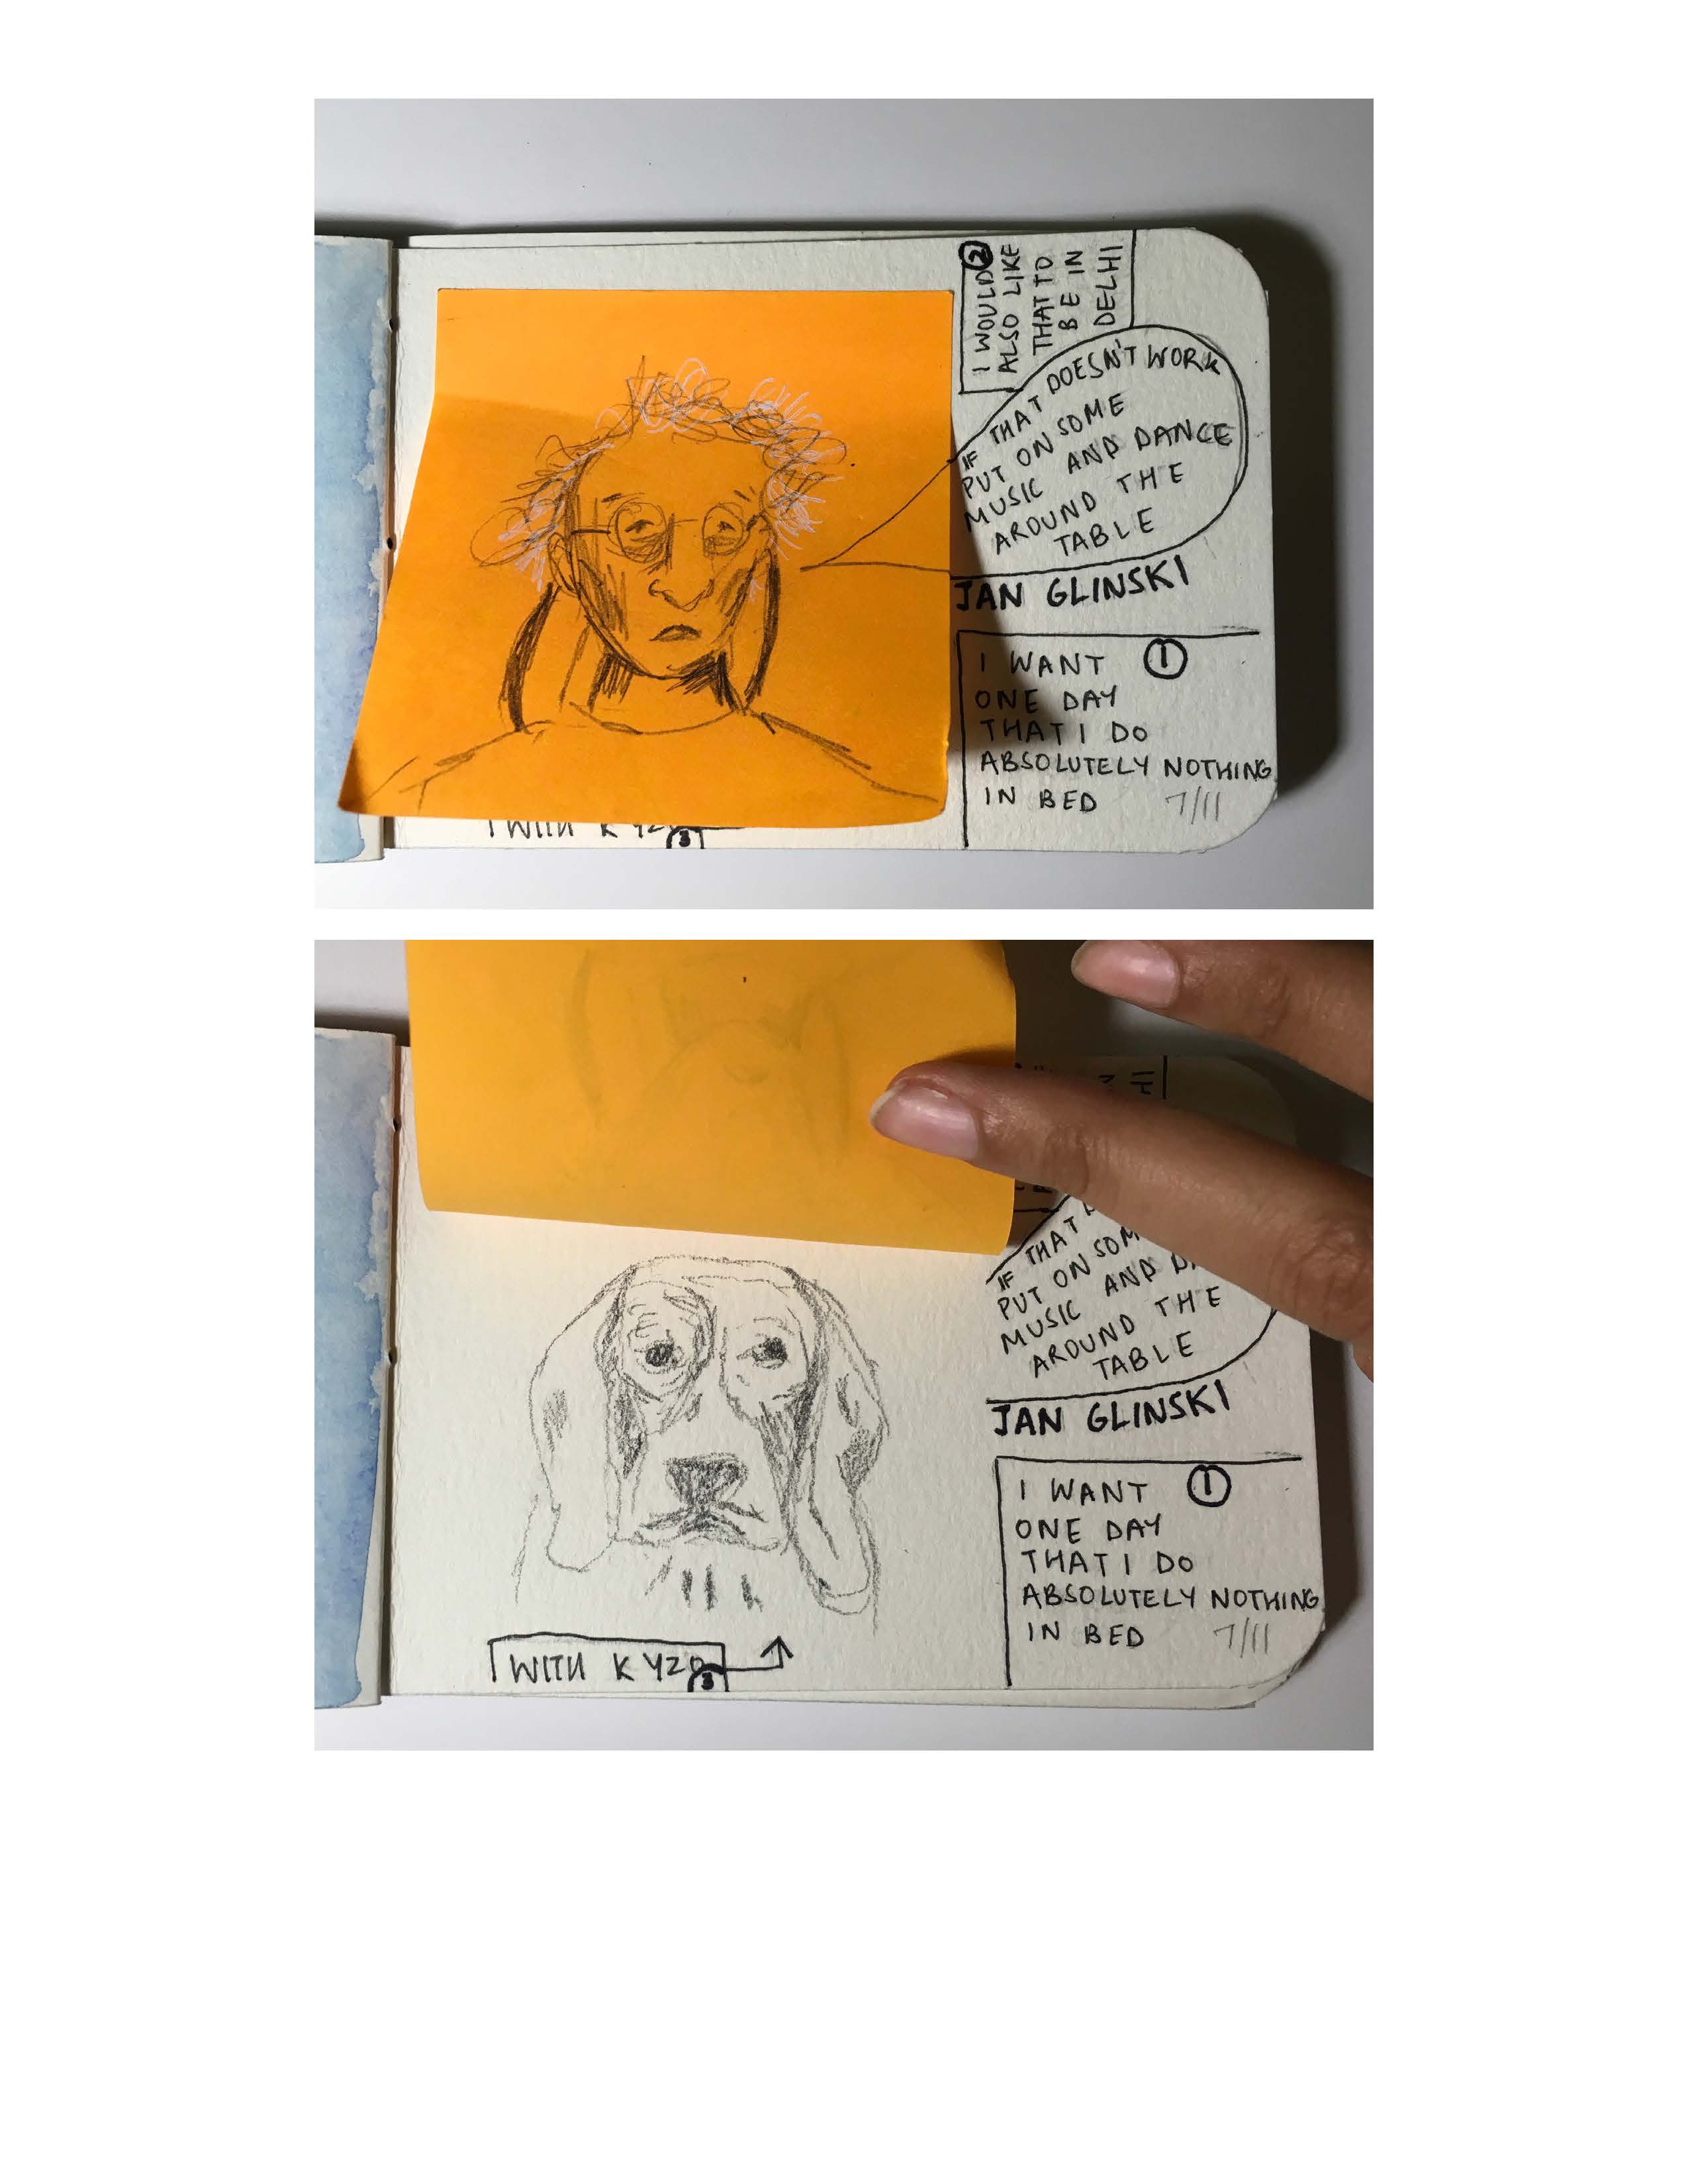 I WOULD 2
ALSO LIKE
THAT TO
BE IN
DELHI
IF THAT DOESN'T WORK
PUT ON SOME
MUSIC AND DANCE
AROUND THE
TABLE
JAN GLINSKI
I WANT 1
ONE DAY
THAT I DO
ABSOLUTELY NOTHING
IN BED 7/11
3
IF THAT
PUT ON SOM
MUSIC AND
AROUND THE
TABLE
JAN GLINSKI
I WANT 1
ONE DAY
THAT I DO
ABSOLUTELY NOTHING
IN BED 7/11
WITH KYZO
3